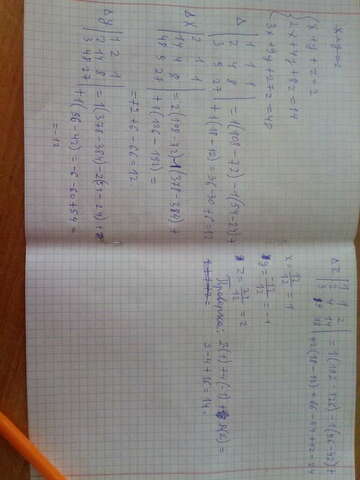 x+y+z=2
2x+4y+8z=14
3x+9y+27z=48
Δ
1 1 1
2 4 8 = 1(108-72)-1(54-24)+
3 9 27 +1(18-12)=36-30+6=12
ΔX
2 1 1
14 4 8 = 2(108-72)-1(378-384)+
48 9 27 +1(126-192)=
=72+6-66=12
ΔY
1 2 1
2 14 8 = 1(378-384)-2(54-24)+
3 48 27 +1(96-42)=-6-60+54=
=-12
ΔZ
1 1 2
2 4 14 = 1(192-126)-1(96-42)+
3 9 48 +2(18-12)=66-54+12=24
x=12/12=1
y=-12/12=-1
z=24/12=2
Проверка: 2(1)+4(-1)+8(2)=
2-4+16=14.